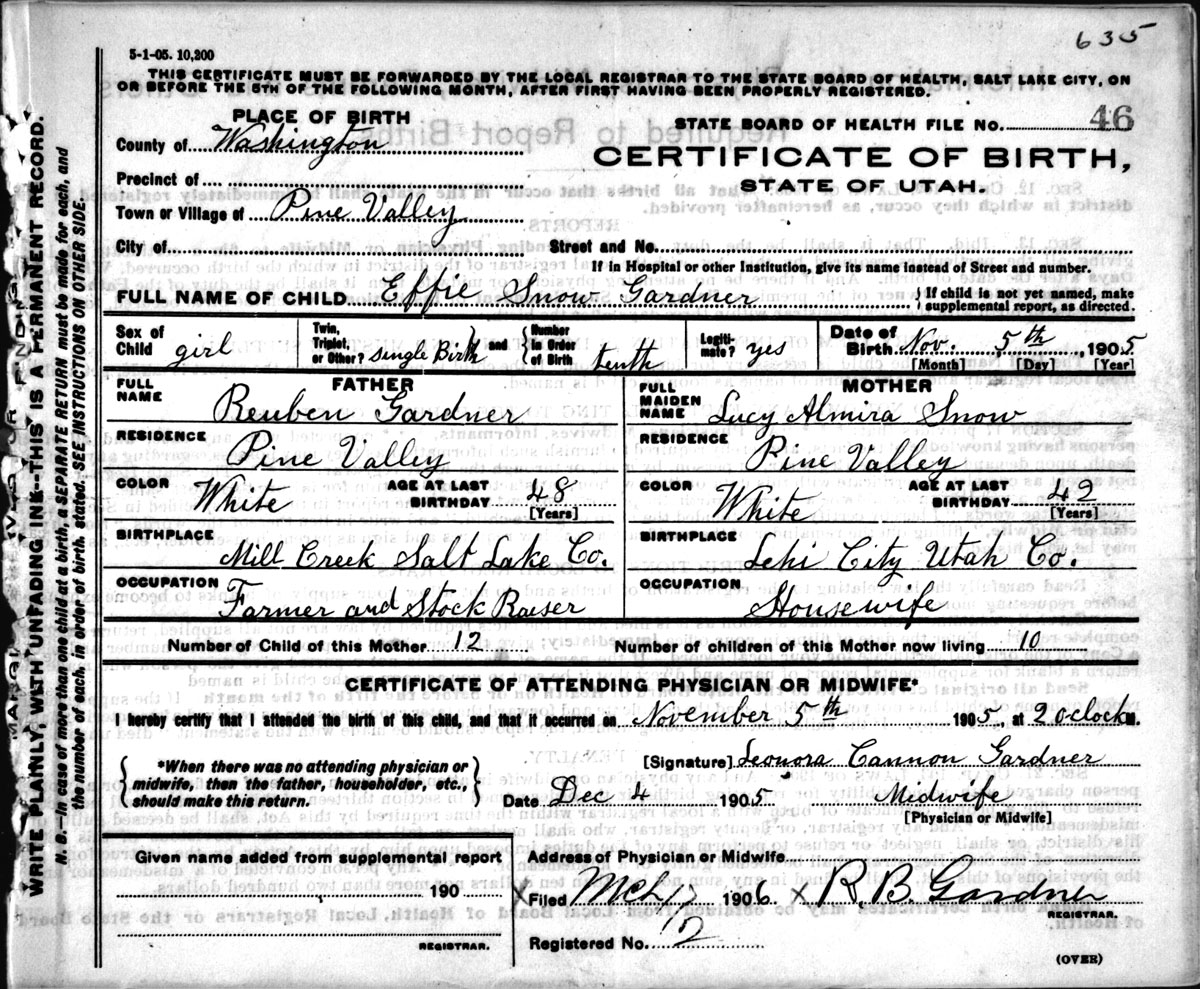 635
5-1-05. 10,200
THIS CERTIFICATE MUST BE FORWARDED BY THE LOCAL REGISTRAR TO THE STATE BOARD OF HEALTH, SALT LAKE CITY, ON
OR BEFORE THE 5TH OF THE FOLLOWING MONTH, AFTER FIRST HAVING BEEN PROPERLY REGISTERED.
PLACE OF BIRTH
STATE BOARD OF HEALTH FILE No. 46
County of Washington
CERTIFICATE OF BIRTH,
STATE OF UTAH.
Precinct of
Town or Village of Pine Valley
City of
Street and No.
If in Hospital or other Institution, give its name instead of Street and number.
FULL NAME OF CHILD Effie Snow Gardner
If child is not yet named, make
supplemental report, as directed.
Sex of
Child girl
Twin,
Triplet,
or Other? single Birth
and
Number
in Order
of Birth tenth
Legiti-
mate? yes
Date of
Birth Nov. 5th, 1905
[Month] [Day] [Year]
FATHER
FULL
NAME
Reuben Gardner
RESIDENCE
Pine Valley
COLOR
White
AGE AT LAST
BIRTHDAY 48
[Years]
BIRTHPLACE
Mill Creek Salt Lake Co.
OCCUPATION
Farmer and Stock Raiser
MOTHER
FULL
MAIDEN
NAME
Lucy Almira Snow
RESIDENCE
Pine Valley
COLOR
White
AGE AT LAST
BIRTHDAY 42
[Years]
BIRTHPLACE
Lehi City Utah Co.
OCCUPATION
Housewife
Number of Child of this Mother 12
Number of children of this Mother now living 10
CERTIFICATE OF ATTENDING PHYSICIAN OR MIDWIFE*
I hereby certify that I attended the birth of this child, and that it occurred on November 5th 1905, at 2 oclock M.
*When there was no attending physician or
midwife, then the father, householder, etc.,
should make this return.
[Signature] Leonora Cannon Gardner
Date Dec 4 1905 Midwife
[Physician or Midwife]
Given name added from supplemental report
190
REGISTRAR.
Address of Physician or Midwife
X Filed Mch 17 1906 X R. B. Gardner
REGISTRAR.
Registered No. 12
(OVER)
WRITE PLAINLY, WITH UNFADING INK--THIS IS A PERMANENT RECORD.
N. B.--In case of more than one child at a birth, a SEPARATE RETURN must be made for each, and
the number of each, in order of birth, stated. SEE INSTRUCTIONS ON OTHER SIDE.